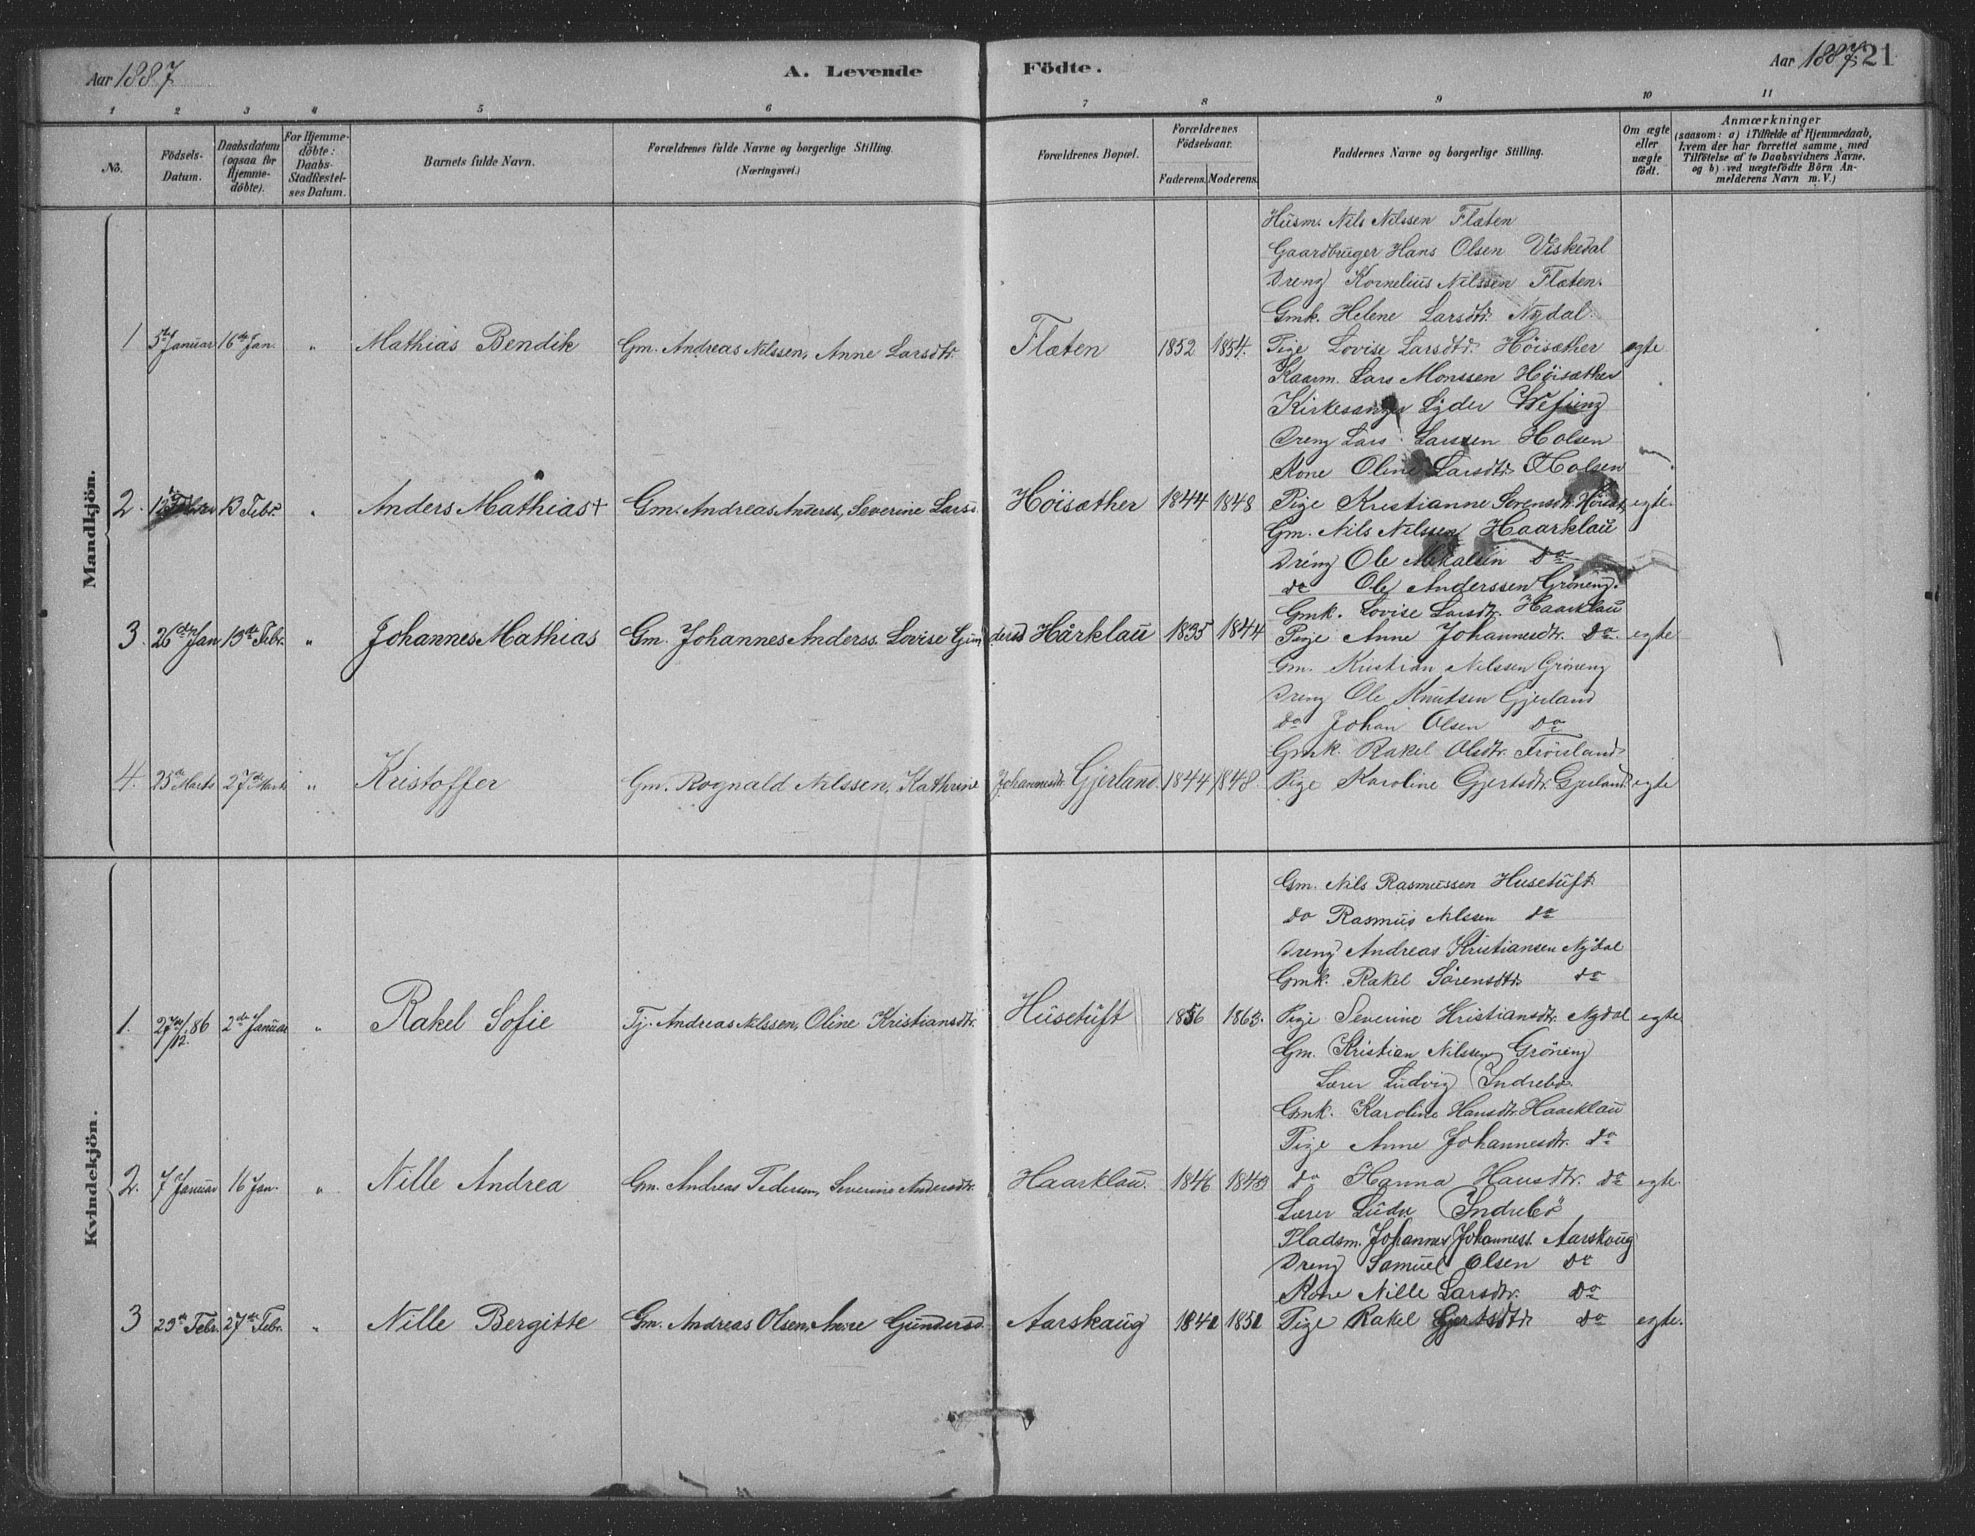 Aar 1887 A. Levende Födte. Aar 1887. 21
1 2 3 4 5 6 7 8 9 10 11
No.
Födsels-
Datum.
Daabsdatum
(ogsaa for
Hjemme-
döbte).
For Hjemme-
döbte:
Daabs-
Stadfæstel-
ses Datum.
Barnets fulde Navn.
Forældrenes fulde Navne og borgerlige Stilling.
(Næringsvei.)
Forældrenes Bopæl.
Forældrenes
Födselsaar.
Faderens. Moderens.
Faddernes Navne og borgerlige Stilling.
Om ægte
eller
uægte
födt.
Anmærkninger
(saasom: a) i Tilfælde af Hjemmedaab,
hvem der har forrettet samme, med
Tilföielse af to Daabsvidners Navne,
og b) ved uægtefödte Börn An-
melderens Navn m. V.)
Mandkjön.
Husm. Nils Nilssen Flæten
Gaardbruger Hans Olsen Viskedal
Dreng Kornelius Nilssen Flæten.
Gmk. Helene Larsdtr. Nydal.
1 5te Januar 16de Jan. " Mathias Bendik Gm. Andreas Nilssen, Anne Larsdtr. Flæten 1852 1854. Pige Lovise Larsdtr. Höisæther ægte
Kaarm. Lars Monssen Höisæther
Kirkesanger Lyder Wefring
Dreng Lars Larssen Holsen
Kone Oline Larsdtr. Holsen
2. 13 Febr. " Anders Mathias + Gm. Andreas Anderss, Severine Larsd. Höisæther 1844 1848 Pige Kristianne Sörensdtr. egte.
Gm. Nils Nilssen Haarklau
Dreng Ole Mikalsen do
do Ole Anderssen Gröneng.
Gmk. Lovise Larsdtr. Haarklau
3. 26de Jan 13de Febr. " Johannes Mathias Gm. Johannes Anderss. Lovise Gundersd Hårklau 1835 1844 Pige Anne Johannesdtr. do. egte
Gm. Kristian Nilssen Gröneng
Dreng Ole Knutsen Gjerland
do Johan Olsen do
Gmk. Rakel Olsdtr. Fröisland
4. 25de Marts 27de Marts " Kristoffer Gm. Rognald Nilssen, Kathrine Johannesdtr. Gjerland. 1844 1848. Pige Karoline Gjertsdtr. Gjerland. egte
Kvindekjön.
Gm. Nils Rasmussen Husetuft
do Rasmus Nilssen do
Dreng Andreas Kristiansen Nydal
Gmk. Rakel Sörensdtr. do
1. 27/12 86 2de Januar " Rakel Sofie Tj. Andreas Nilssen, Oline Kristiansdtr. Husetuft 1856 1863. Pige Severine Kristiansdtr. Nydal egte
Gm. Kristian Nilssen Gröneng
Lærer Ludvig Indrebö.
Gmk. Karoline Hansdtr. Haarklau
Pige Anne Johannesdtr. do
2. 7 Januar 16 Jan. " Nille Andrea Gm. Andreas Pedersen, Severine Andersdtr. Haarklau. 1846 do Hanna Hansdtr. do egte.
Lærer Ludv. Indrebö
Pladsm. Johannes Johanness. Aarskaug
Dreng Samuel Olsen do
Kone Nille Larsdtr. do
3 Febr. 27de Febr. " Nille Bergitte Gm. Andreas Olsen, Anne Gundersd. Aarskaug Pige Rakel Gjertsdtr. do egte.